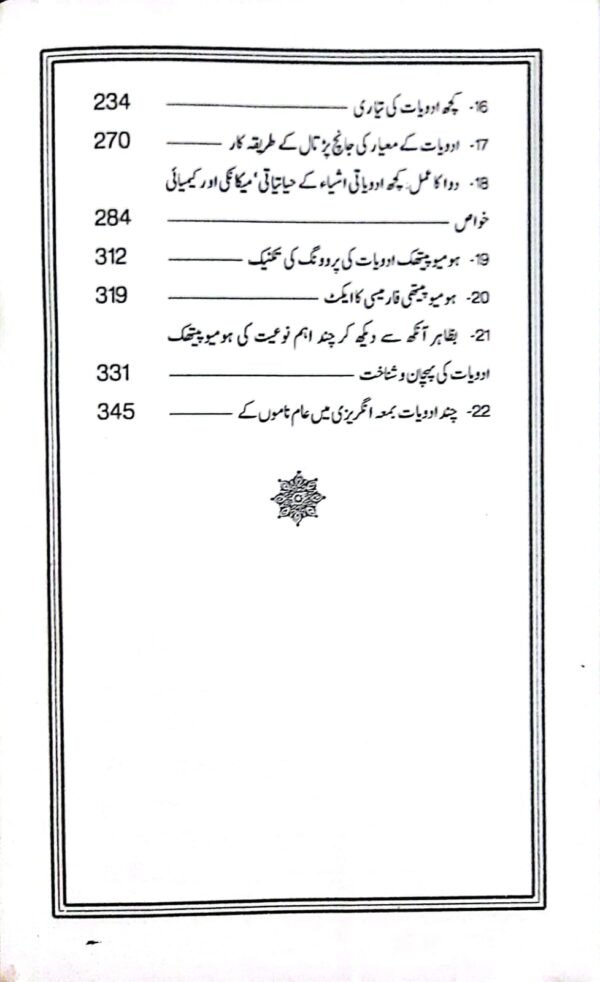 16- کچھ ادویات کی تیاری 234
17- ادویات کے معیار کی جانچ پڑتال کے طریقہ کار 270
18- دوا کا عمل۔ کچھ ادویاتی اشیاء کے حیاتیاتی‘ میکانکی اور کیمیائی
خواص 284
19- ہومیوپیتھک ادویات کی پروونگ کی تکنیک 312
20- ہومیوپیتھی فارمیسی کا ایکٹ 319
21- بظاہر آنکھ سے دیکھ کر چند اہم نوعیت کی ہومیوپیتھک
ادویات کی پہچان و شناخت 331
22- چند ادویات بمعہ انگریزی میں عام ناموں کے 345